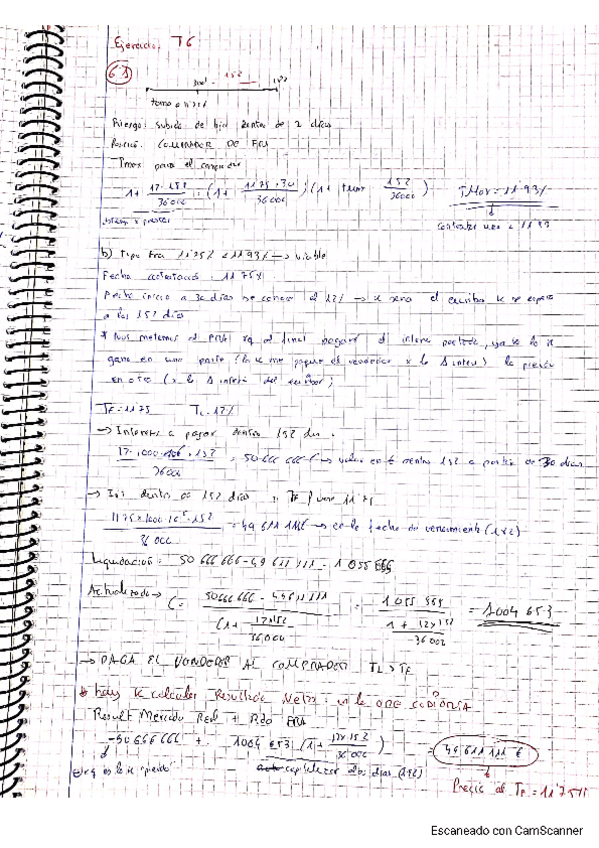 Ejercicios T6
6.1
152
tomo a 11'75%
Riesgo: subida de tipos dentro de 2 días
Posición: COMPRADOR DE FRA
Tmax para el comprador
1+ 12·182/36000 = (1+ 11'75·30/36000)(1+ tmax 152/36000) TMax = 11'93%
contratar uno < 11'93
b) Tipo FRA 11'75% < 11'93% → viable
Fecha contratación: 11'75%
Fecha inicio a 30 días se conoce el 12% → x sera el euribor k se espera
a los 152 días
* Nos metemos al FRA xq al final pagaré el interes pactado, ya se lo k
gano en una parte (lo k me pague el vendedor x la Δ interes) lo pierdo
en otro (x la Δ interes del euribor)
TF = 11'75 TL = 12%
→ Intereses a pagar dentro 152 días.
12·1000·10⁶·152/36000 = 50.666.666 € → valor en € dentro 152 a partir de 30 días
→ Int. dentro de 152 días 11'75
11'75×1000·10⁶·152/36000 = 49.611.111€ → en la fecha de vencimiento (182)
Liquidación: 50666666-49611111 = 1055555
Actualizado → C = 50666666 - 49611111/(1+ 12×152/36000) = 1055555/1+ 12×152/36000 = 1004653
→ PAGA EL VENDEDOR AL COMPRADOR TL > TF
* hay k calcular Resultado Neto:
Result Mercado Real + Rdo FRA
-50666666 + 1004653 (1+ 12×152/36000) = 49611111 €
capitalizar a los días (152)
Precio al TF = 11'75%
Escaneado con CamScanner